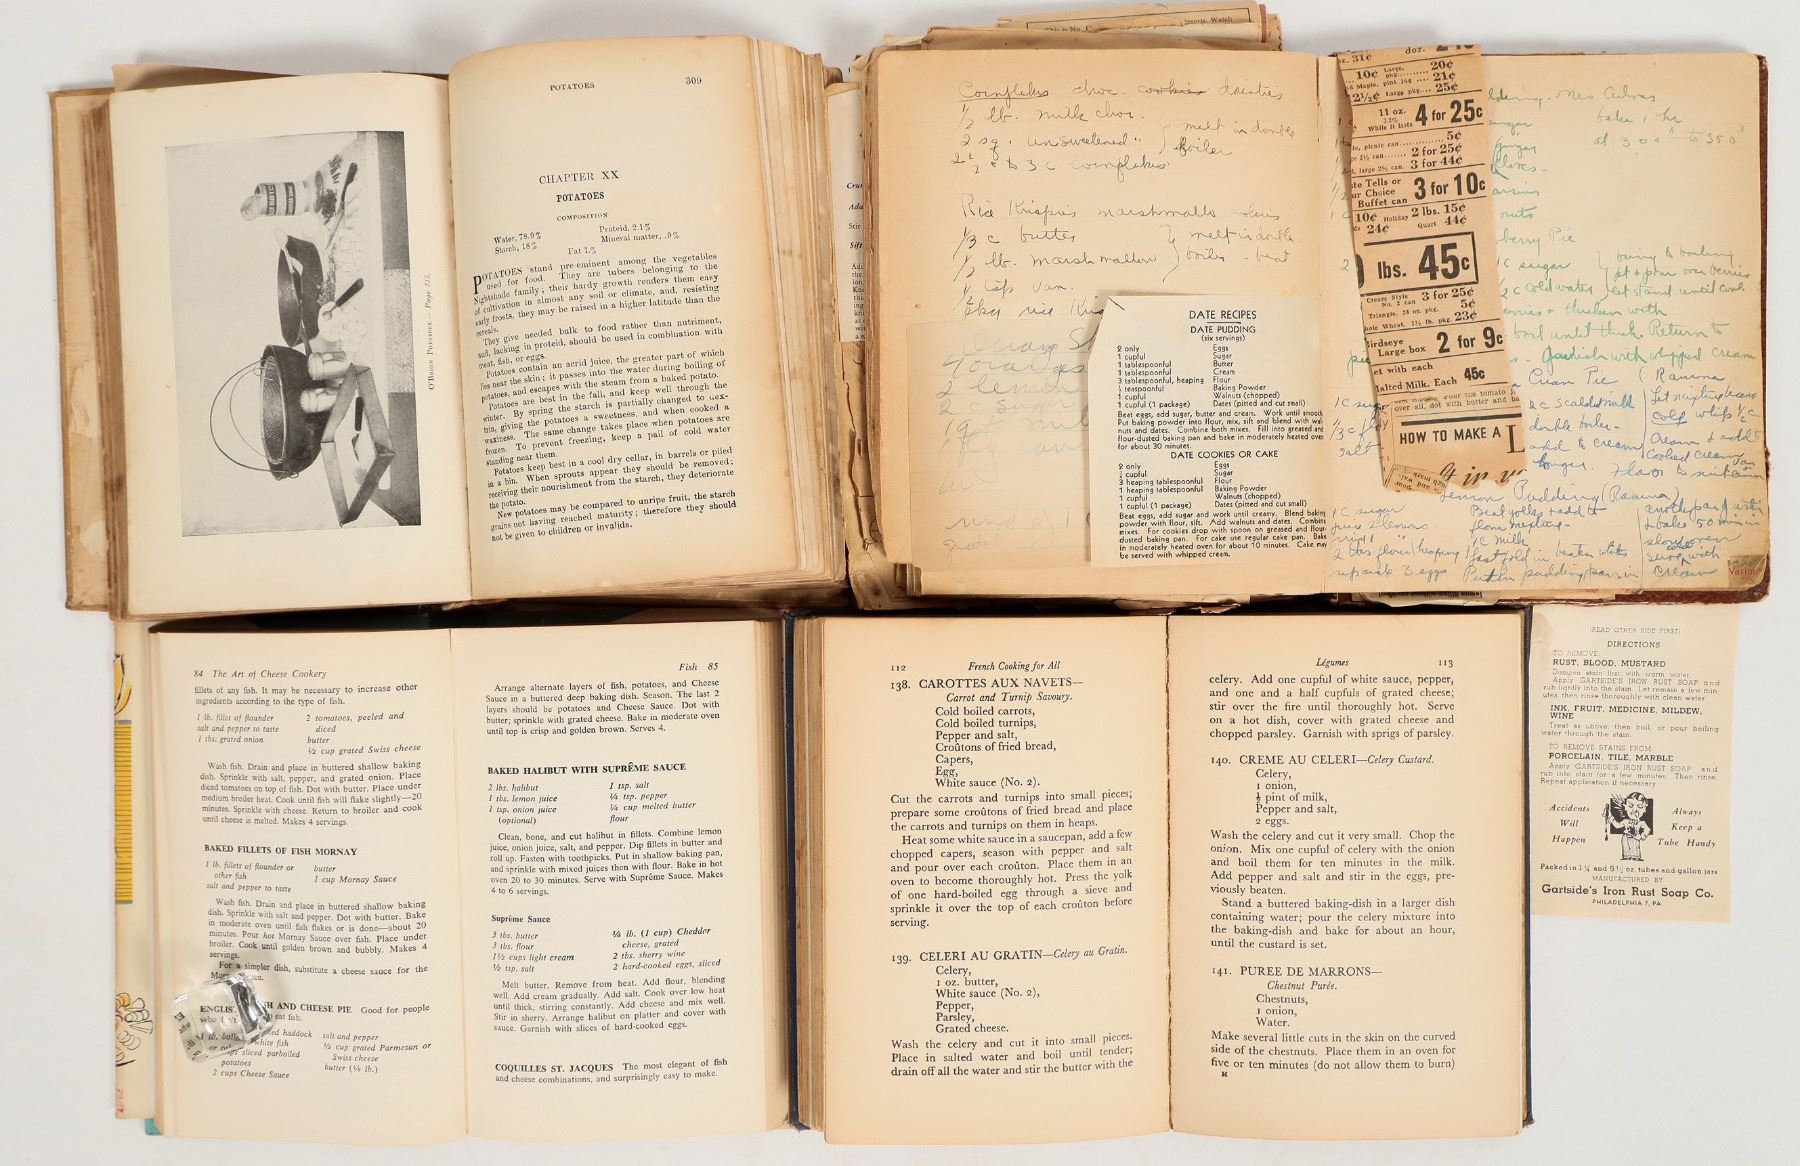 POTATOES 309
CHAPTER XX
POTATOES
COMPOSITION
Water, 78.9% Proteid, 2.1%
Starch, 18% Mineral matter, .9%
Fat 1.%
POTATOES stand pre-eminent among the vegetables
used for food. They are tubers belonging to the
Nightshade family; their hardy growth renders them easy
of cultivation in almost any soil or climate, and, resisting
early frosts, they may be raised in a higher latitude than the
cereals.
They give needed bulk to food rather than nutriment,
and, lacking in proteid, should be used in combination with
meat, fish, or eggs.
Potatoes contain an acrid juice, the greater part of which
lies near the skin; it passes into the water during boiling of
potatoes, and escapes with the steam from a baked potato.
Potatoes are best in the fall, and keep well through the
winter. By spring the starch is partially changed to dex-
trin, giving the potatoes a sweetness, and when cooked a
waxiness. The same change takes place when potatoes are
frozen. To prevent freezing, keep a pail of cold water
standing near them.
Potatoes keep best in a cool dry cellar, in barrels or piled
in a bin. When sprouts appear they should be removed;
receiving their nourishment from the starch, they deteriorate
the potato.
New potatoes may be compared to unripe fruit, the starch
grains not having reached maturity; therefore they should
not be given to children or invalids.
O'BRION POTATOES. — Page 315.
Cornflakes choc. cookies dainties
½ lb. milk choc.
2 sq. unsweetened " melt in double
boiler
2½ c to 3 c cornflakes
Rice Krispies marshmallo
⅓ c butter melt in double
½ lb. marshmallow boiler - beat
½ tsp van.
pkg rice Kris
2 lemon
2 c sugar
DATE RECIPES
DATE PUDDING
(six servings)
2 only Eggs
1 cupful Sugar
1 tablespoonful Butter
1 tablespoonful Cream
3 tablespoonful, heaping Flour
teaspoonful Baking Powder
1 cupful Walnuts (chopped)
1 cupful (1 package) Dates (pitted and cut small)
Beat eggs, add sugar, butter and cream. Work until smooth
Put baking powder into flour, mix, sift and blend with wal
nuts and dates. Combine both mixes. Fill into greased and
flour-dusted baking pan and bake in moderately heated oven
for about 30 minutes.
DATE COOKIES OR CAKE
2 only Eggs
cupful Sugar
3 heaping tablespoonful Flour
1 heaping tablespoonful Baking Powder
1 cupful Walnuts (chopped)
1 cupful (1 package) Dates (pitted and cut small)
Beat eggs, add sugar and work until creamy. Blend baking
powder with flour, sift. Add walnuts and dates. Combine
mixes. For cookies drop with spoon on greased and flour-
dusted baking pan. For cake use regular cake pan. Bake
in moderately heated oven for about 10 minutes. Cake may
be served with whipped cream.
doz.
31¢
10¢ Large, pkg. 20¢
Maple, pint jug 21¢
2½¢ Large pkg. 25¢
11 oz.
While it lasts 4 for 25c
picnic can 5¢
2½ can 2 for 25¢
large 2½ can. 3 for 44¢
Tells or
Choice
Buffet can 3 for 10c
10¢ Holiday 2 lbs. 15¢
24¢ Quart 44¢
lbs. 45c
Cream Style
No. 2 can 3 for 25¢
Triangle, 24 oz. pkg. 5¢
Wheat, 1½ lb. pkg. 23¢
Birdseye
Large box 2 for 9c
et with each
Malted Milk. Each 45c
over all, dot with butter and
HOW TO MAKE A
bake 1 hr
at 300° to 350°
ginger
cloves
berry Pie
1 c sugar bring to boiling
pt & pour over berries
½ c cold water let stand until cool.
thicken with
boil until thick Return to
Garnish with whipped cream
1 c sugar
salt
Cream Pie
2 c scalded milk
double boiler -
add to cream
longer. Flavor
whip ½ c
Cream & add to
Cooked cream
Lemon Pudding
1 c sugar Beat yolks & add to
juice 2 lemons flour
1 c milk
2 tbs flour (heaping) last fold in beaten whites
separate 3 eggs Put in pudding pan in
another pan
& bake 50 min in
slow oven
serve cold with
cream
84 The Art of Cheese Cookery
fillets of any fish. It may be necessary to increase other
ingredients according to the type of fish.
1 lb. fillet of flounder 2 tomatoes, peeled and
salt and pepper to taste diced
1 tbs. grated onion butter
½ cup grated Swiss cheese
Wash fish. Drain and place in buttered shallow baking
dish. Sprinkle with salt, pepper, and grated onion. Place
diced tomatoes on top of fish. Dot with butter. Place under
medium broiler heat. Cook until fish will flake slightly—20
minutes. Sprinkle with cheese. Return to broiler and cook
until cheese is melted. Makes 4 servings.
BAKED FILLETS OF FISH MORNAY
1 lb. fillets of flounder or butter
other fish 1 cup Mornay Sauce
salt and pepper to taste
Wash fish. Drain and place in buttered shallow baking
dish. Sprinkle with salt and pepper. Dot with butter. Bake
in moderate oven until fish flakes or is done—about 20
minutes. Pour hot Mornay Sauce over fish. Place under
broiler. Cook until golden brown and bubbly. Makes 4
servings.
For a simpler dish, substitute a cheese sauce for the
AND CHEESE PIE Good for people
eat fish.
haddock salt and pepper
white fish ½ cup grated Parmesan or
sliced parboiled Swiss cheese
potatoes butter (⅛ lb.)
2 cups Cheese Sauce
Fish 85
Arrange alternate layers of fish, potatoes, and Cheese
Sauce in a buttered deep baking dish. Season. The last 2
layers should be potatoes and Cheese Sauce. Dot with
butter; sprinkle with grated cheese. Bake in moderate oven
until top is crisp and golden brown. Serves 4.
BAKED HALIBUT WITH SUPRÊME SAUCE
2 lbs. halibut 1 tsp. salt
1 tbs. lemon juice ¼ tsp. pepper
1 tsp. onion juice ¼ cup melted butter
(optional) flour
Clean, bone, and cut halibut in fillets. Combine lemon
juice, onion juice, salt, and pepper. Dip fillets in butter and
roll up. Fasten with toothpicks. Put in shallow baking pan,
and sprinkle with mixed juices then with flour. Bake in hot
oven 20 to 30 minutes. Serve with Suprême Sauce. Makes
4 to 6 servings.
Suprême Sauce
3 tbs. butter ¼ lb. (1 cup) Chedder
3 tbs. flour cheese, grated
1½ cups light cream 2 tbs. sherry wine
½ tsp. salt 2 hard-cooked eggs, sliced
Melt butter. Remove from heat. Add flour, blending
well. Add cream gradually. Add salt. Cook over low heat
until thick, stirring constantly. Add cheese and mix well.
Stir in sherry. Arrange halibut on platter and cover with
sauce. Garnish with slices of hard-cooked eggs.
COQUILLES ST. JACQUES The most elegant of fish
and cheese combinations, and surprisingly easy to make.
112 French Cooking for All
138. CAROTTES AUX NAVETS—
Carrot and Turnip Savoury.
Cold boiled carrots,
Cold boiled turnips,
Pepper and salt,
Croûtons of fried bread,
Capers,
Egg,
White sauce (No. 2).
Cut the carrots and turnips into small pieces;
prepare some croûtons of fried bread and place
the carrots and turnips on them in heaps.
Heat some white sauce in a saucepan, add a few
chopped capers, season with pepper and salt
and pour over each croûton. Place them in an
oven to become thoroughly hot. Press the yolk
of one hard-boiled egg through a sieve and
sprinkle it over the top of each croûton before
serving.
139. CELERI AU GRATIN—Celery au Gratin.
Celery,
1 oz. butter,
White sauce (No. 2),
Pepper,
Parsley,
Grated cheese.
Wash the celery and cut it into small pieces.
Place in salted water and boil until tender;
drain off all the water and stir the butter with the
Légumes 113
celery. Add one cupful of white sauce, pepper,
and one and a half cupfuls of grated cheese;
stir over the fire until thoroughly hot. Serve
on a hot dish, cover with grated cheese and
chopped parsley. Garnish with sprigs of parsley.
140. CREME AU CELERI—Celery Custard.
Celery,
1 onion,
½ pint of milk,
Pepper and salt,
2 eggs.
Wash the celery and cut it very small. Chop the
onion. Mix one cupful of celery with the onion
and boil them for ten minutes in the milk.
Add pepper and salt and stir in the eggs, pre-
viously beaten.
Stand a buttered baking-dish in a larger dish
containing water; pour the celery mixture into
the baking-dish and bake for about an hour,
until the custard is set.
141. PUREE DE MARRONS—
Chestnut Purée.
Chestnuts,
1 onion,
Water.
Make several little cuts in the skin on the curved
side of the chestnuts. Place them in an oven for
five or ten minutes (do not allow them to burn)
H
(READ OTHER SIDE FIRST)
DIRECTIONS
TO REMOVE:
RUST, BLOOD, MUSTARD
Dampen stain first with warm water.
Apply GARTSIDE'S IRON RUST SOAP and
rub lightly into the stain. Let remain a few min-
utes then rinse thoroughly with clean water.
INK, FRUIT, MEDICINE, MILDEW,
WINE
Treat as above, then boil, or pour boiling
water through the stain.
TO REMOVE STAINS FROM
PORCELAIN, TILE, MARBLE
Apply GARTSIDE'S IRON RUST SOAP and
rub into stain for a few minutes. Then rinse.
Repeat application if necessary
Accidents Always
Will Keep a
Happen Tube Handy
Packed in 1¼ and 5½ oz. tubes and gallon jars
MANUFACTURED BY
Gartside's Iron Rust Soap Co.
PHILADELPHIA 7, PA.